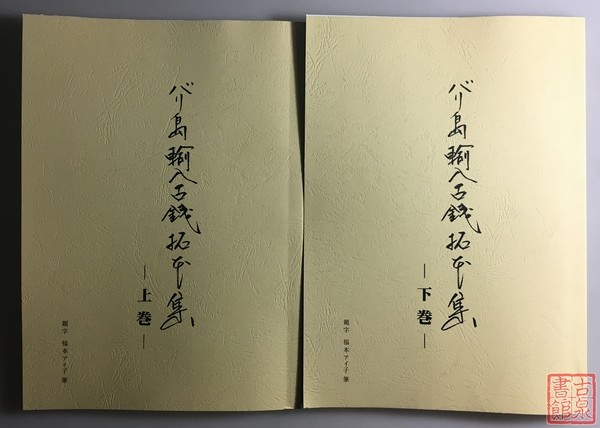 バリ島輸入古銭拓本集
—上巻—
題字 福本アイ子 筆
バリ島輸入古銭拓本集
—下巻—
題字 福本アイ子 筆
古泉
書館